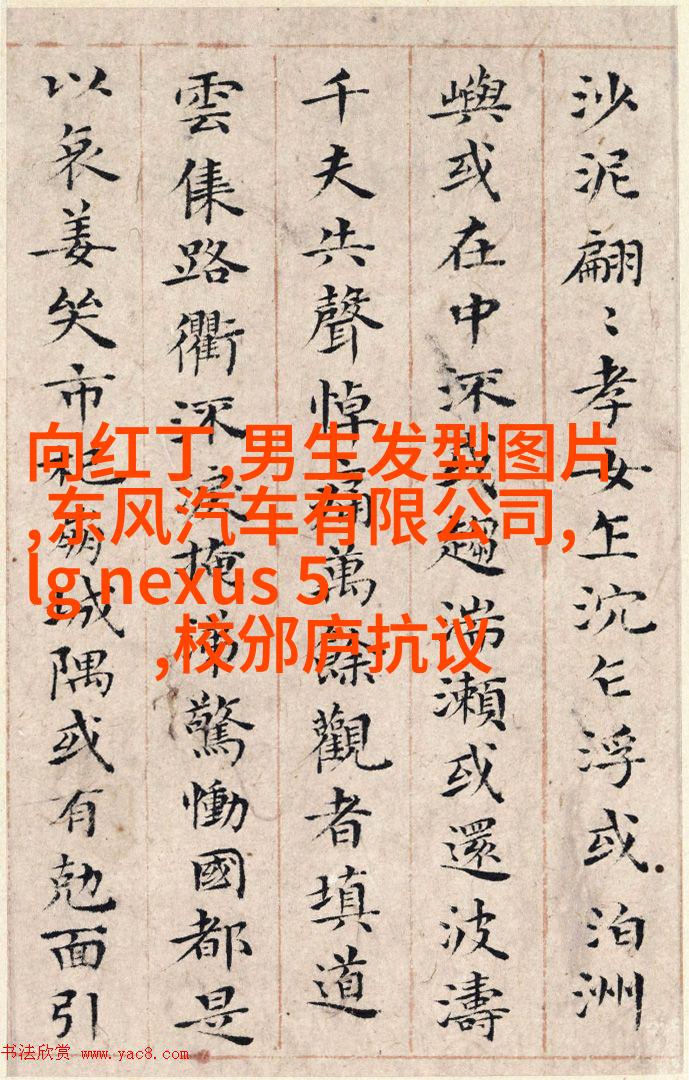 沙泥翩〻孝女乍沉乍浮或泊洲
嶼或在中深或趨湍瀨或還波濤
千夫共聲悼痛萬餘觀者填道
雲集路衢流淚掩涕驚慟國都是
以哀姜哭市杞崩城隅或有勊面引
向红丁,男生发型图片
,东风汽车有限公司,
lg nexus 5
,校邠庐抗议
书法欣赏 www.yac8.com